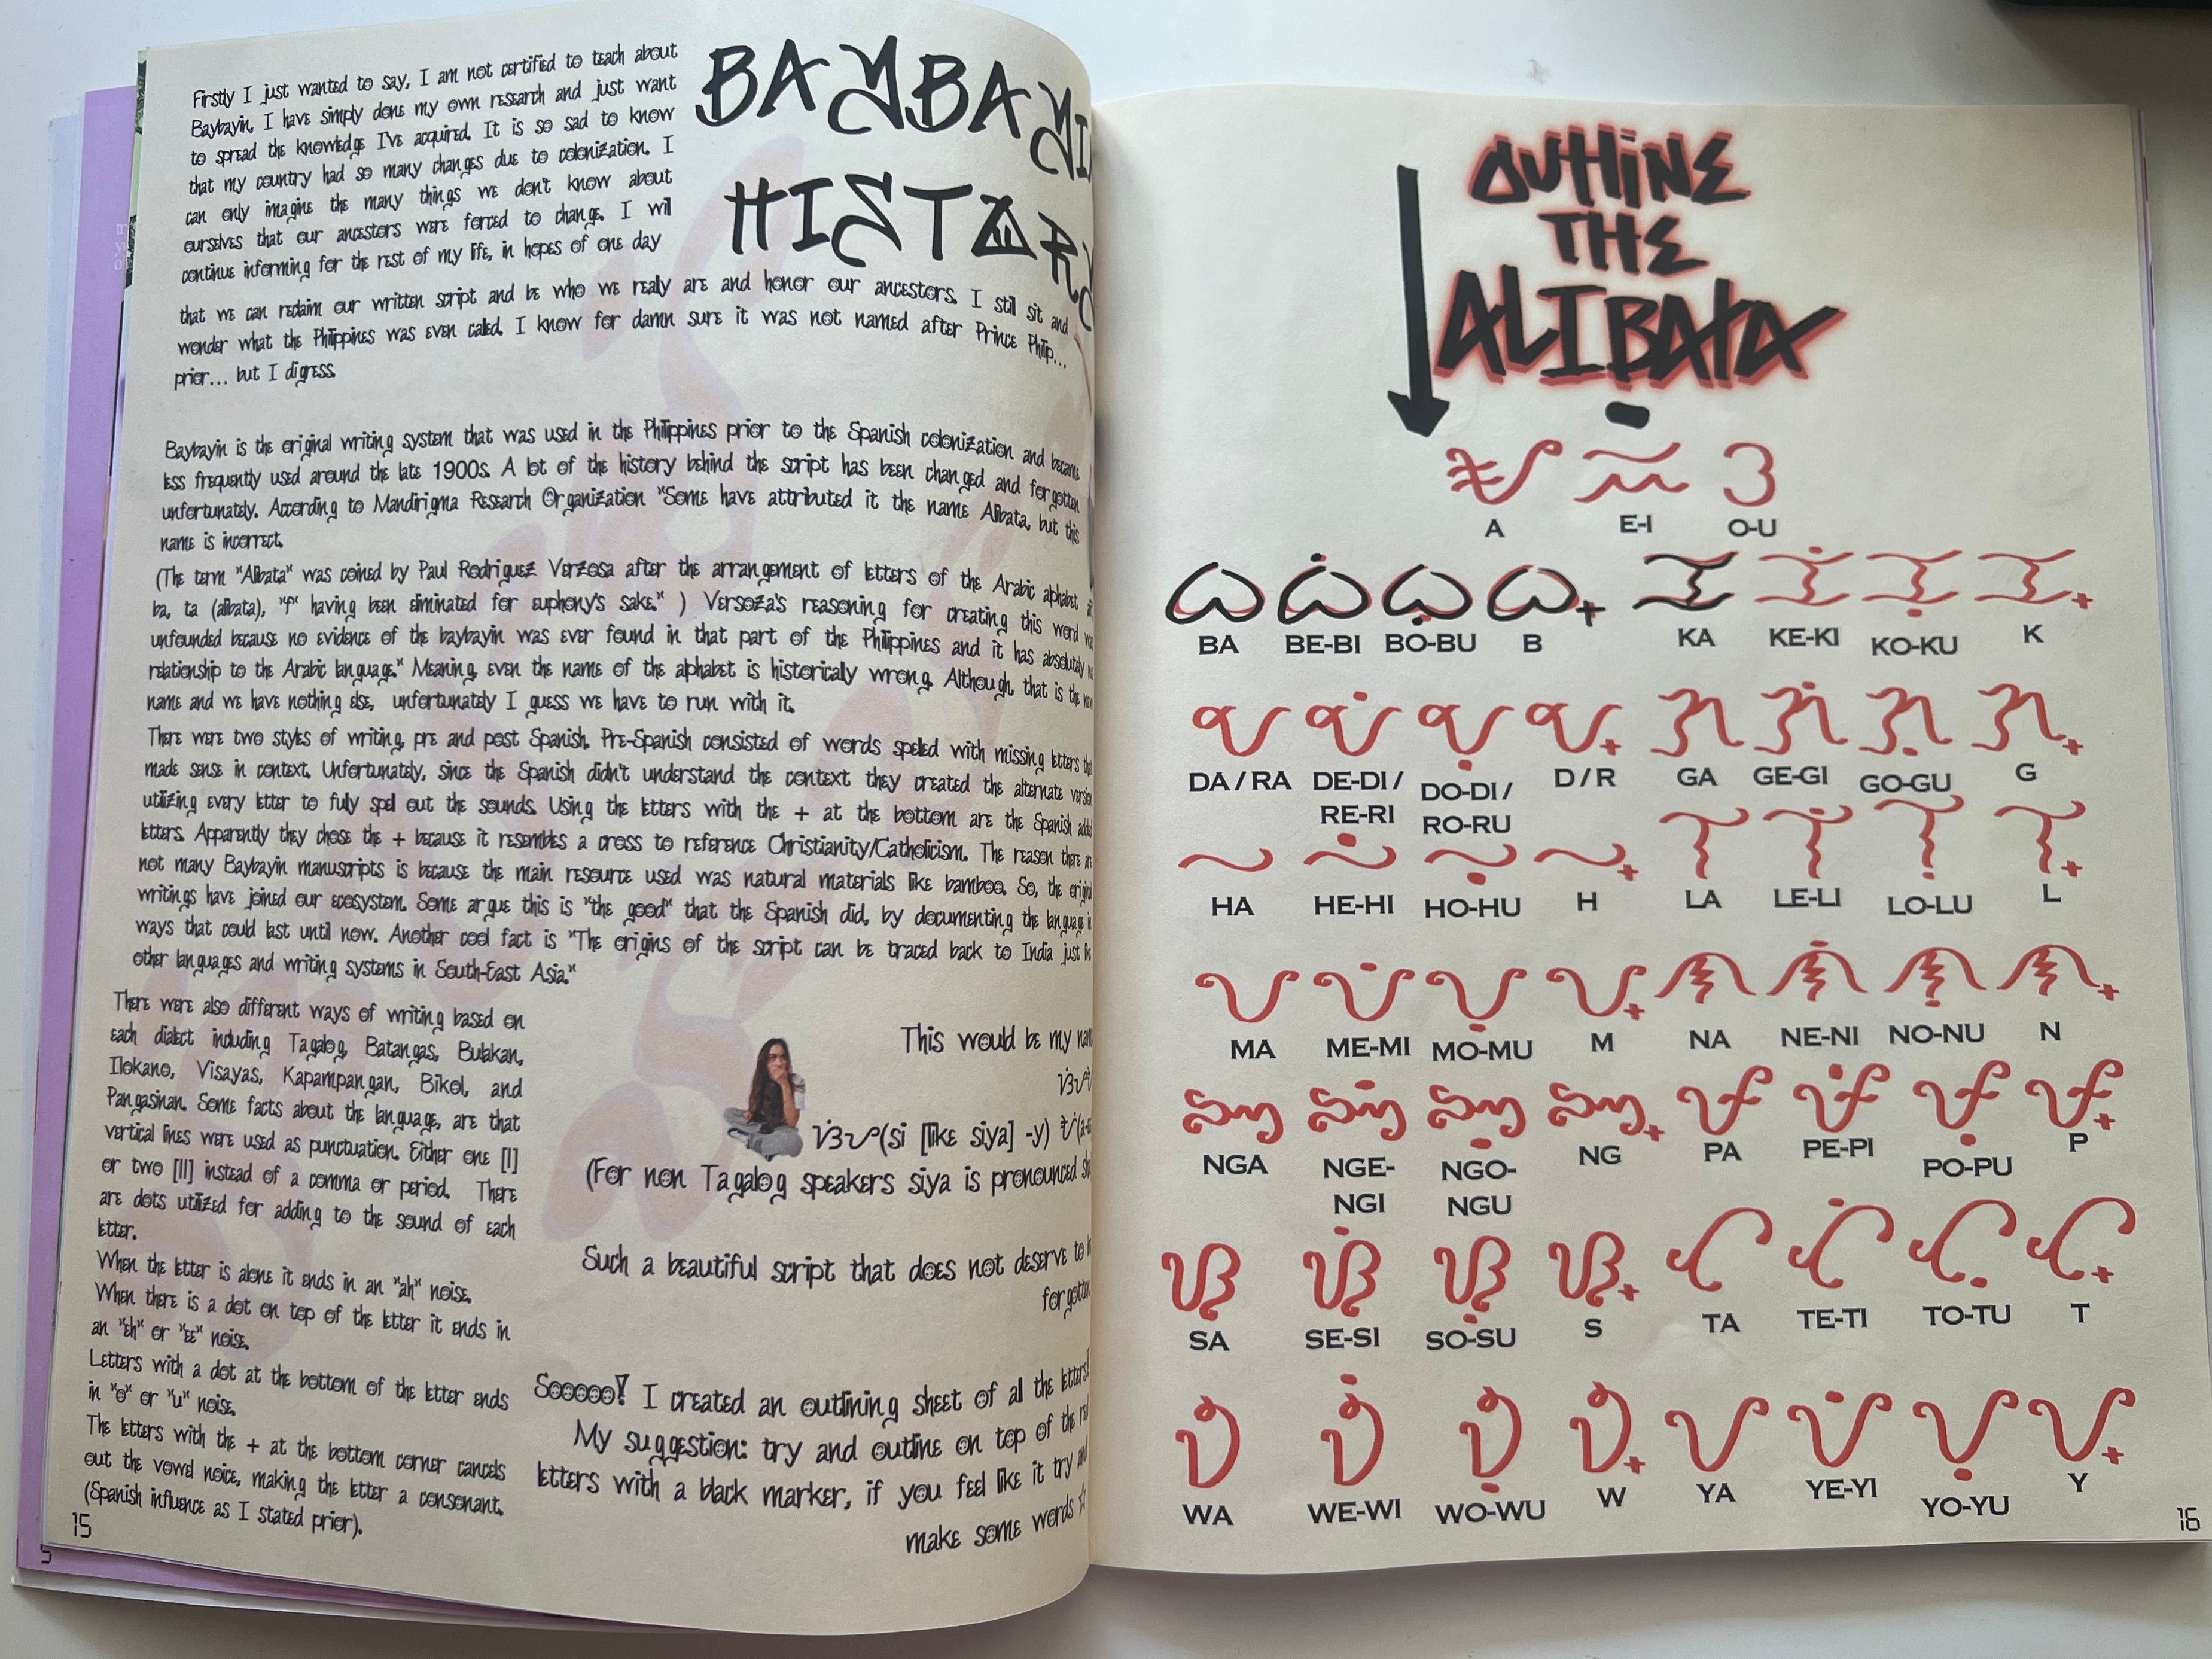 Firstly I just wanted to say, I am not certified to teach about
Baybayin, I have simply done my own research and just want
to spread the knowledge I've acquired. It is so sad to know
that my country had so many changes due to colonization. I
can only imagine the many things we don't know about
ourselves that our ancestors were forced to change. I will
continue informing for the rest of my life, in hopes of one day
that we can reclaim our written script and be who we really are and honor our ancestors. I still sit and
wonder what the Philippines was even called. I know for damn sure it was not named after Prince Philip...
prior... but I digress.
BAYBAYI
HISTORY
Baybayin is the original writing system that was used in the Philippines prior to the Spanish colonization and became
less frequently used around the late 1900s. A lot of the history behind the script has been changed and forgotten
unfortunately. According to Mandirigma Research Organization "Some have attributed it the name Alibata, but this
name is incorrect.
(The term "Alibata" was coined by Paul Rodriguez Verzosa after the arrangement of letters of the Arabic alphabet
ba, ta (alibata), "f" having been eliminated for euphony's sake." ) Versoza's reasoning for creating this word
unfounded because no evidence of the baybayin was ever found in that part of the Philippines and it has absolutely
relationship to the Arabic language." Meaning, even the name of the alphabet is historically wrong. Although, that is the
name and we have nothing else, unfortunately I guess we have to run with it.
There were two styles of writing, pre and post Spanish. Pre-Spanish consisted of words spelled with missing letters
made sense in context. Unfortunately, since the Spanish didn't understand the context they created the alternate version
utilizing every letter to fully spell out the sounds. Using the letters with the + at the bottom are the Spanish
letters. Apparently they chose the + because it resembles a cross to reference Christianity/Catholicism. The reason there
not many Baybayin manuscripts is because the main resource used was natural materials like bamboo. So, the
writings have joined our ecosystem. Some argue this is "the good" that the Spanish did, by documenting the language
ways that could last until now. Another cool fact is "The origins of the script can be traced back to India just
other languages and writing systems in South-East Asia."
There were also different ways of writing based on
each dialect including Tagalog, Batangas, Bulakan,
Ilokano, Visayas, Kapampangan, Bikol, and
Pangasinan. Some facts about the language, are that
vertical lines were used as punctuation. Either one [|]
or two [||] instead of a comma or period. There
are dots utilized for adding to the sound of each
letter.
When the letter is alone it ends in an "ah" noise.
When there is a dot on top of the letter it ends in
an "eh" or "ee" noise.
Letters with a dot at the bottom of the letter ends
in "o" or "u" noise.
The letters with the + at the bottom corner cancels
out the vowel noice, making the letter a consonant.
(Spanish influence as I stated prior).
This would be my
(si [like siya] -y)
(For non Tagalog speakers siya is pronounced
Such a beautiful script that does not deserve to
Sooooo! I created an outlining sheet of all the letters!
My suggestion: try and outline on top of the
letters with a black marker, if you feel like it try
make some words
15
5
OUTLINE
THE
ALIBATA
A E-I O-U
BA BE-BI BO-BU B KA KE-KI KO-KU K
DA / RA DE-DI / DO-DI / D / R GA GE-GI GO-GU G
RE-RI RO-RU
HA HE-HI HO-HU H LA LE-LI LO-LU L
MA ME-MI MO-MU M NA NE-NI NO-NU N
NGA NGE- NGO- NG PA PE-PI PO-PU P
NGI NGU
SA SE-SI SO-SU S TA TE-TI TO-TU T
WA WE-WI WO-WU W YA YE-YI YO-YU Y
16